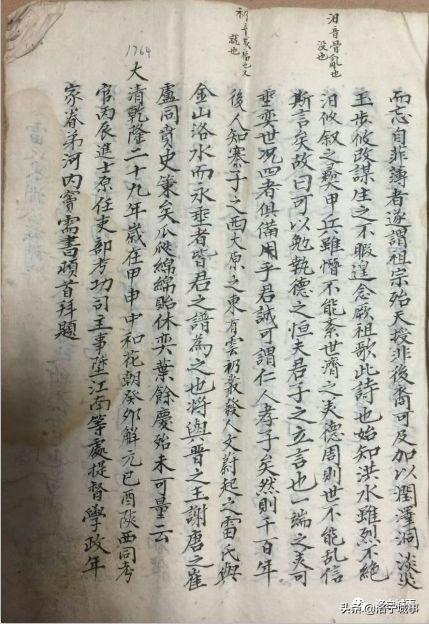 汩音骨亂也
没也
1764
而忘自菲薄者遂謂祖宗殆天授非後裔可及加以潤澤洞淡災
王步攸改謀生之不暇遑念厥祖歌此詩也始知洪水雖烈不絶
汩攸叙之彝甲兵雖憯不能紊世濟之美德周則世不能乱信
斯言矣故曰可以勉執德之恒夫君子之立言也一端之美可
垂奕世况四者俱備用乎君誠可謂仁人孝子矣然則千百年
後人知寨子之西大原之東有雲礽叢發人文蔚起之雷氏與
金山洛水而永垂者皆君之譜為之也將與晋之王謝唐之崔
盧同賁史策矣瓜瓞綿綿貽休奕葉餘慶殆未可量云
大清乾隆二十九年歲在甲申中和花朝癸夘解元己酉陝西同考
官丙辰進士原任吏部考功司主事陞江南等處提督學政年
家眷弟河内竇需書頓首拜題
头条@洛宁城事
洛宁城事